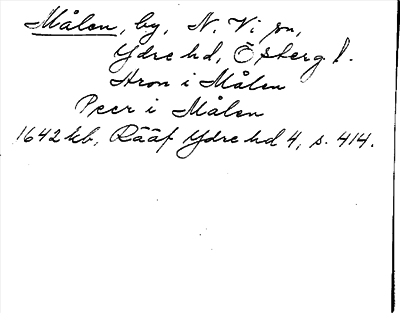 Målen, by, N. Vi sn,
Ydre hd, Österg l.
Aron i Målen
Peer i Målen
1642 kb, Rääf Ydre hd 4, s. 414.